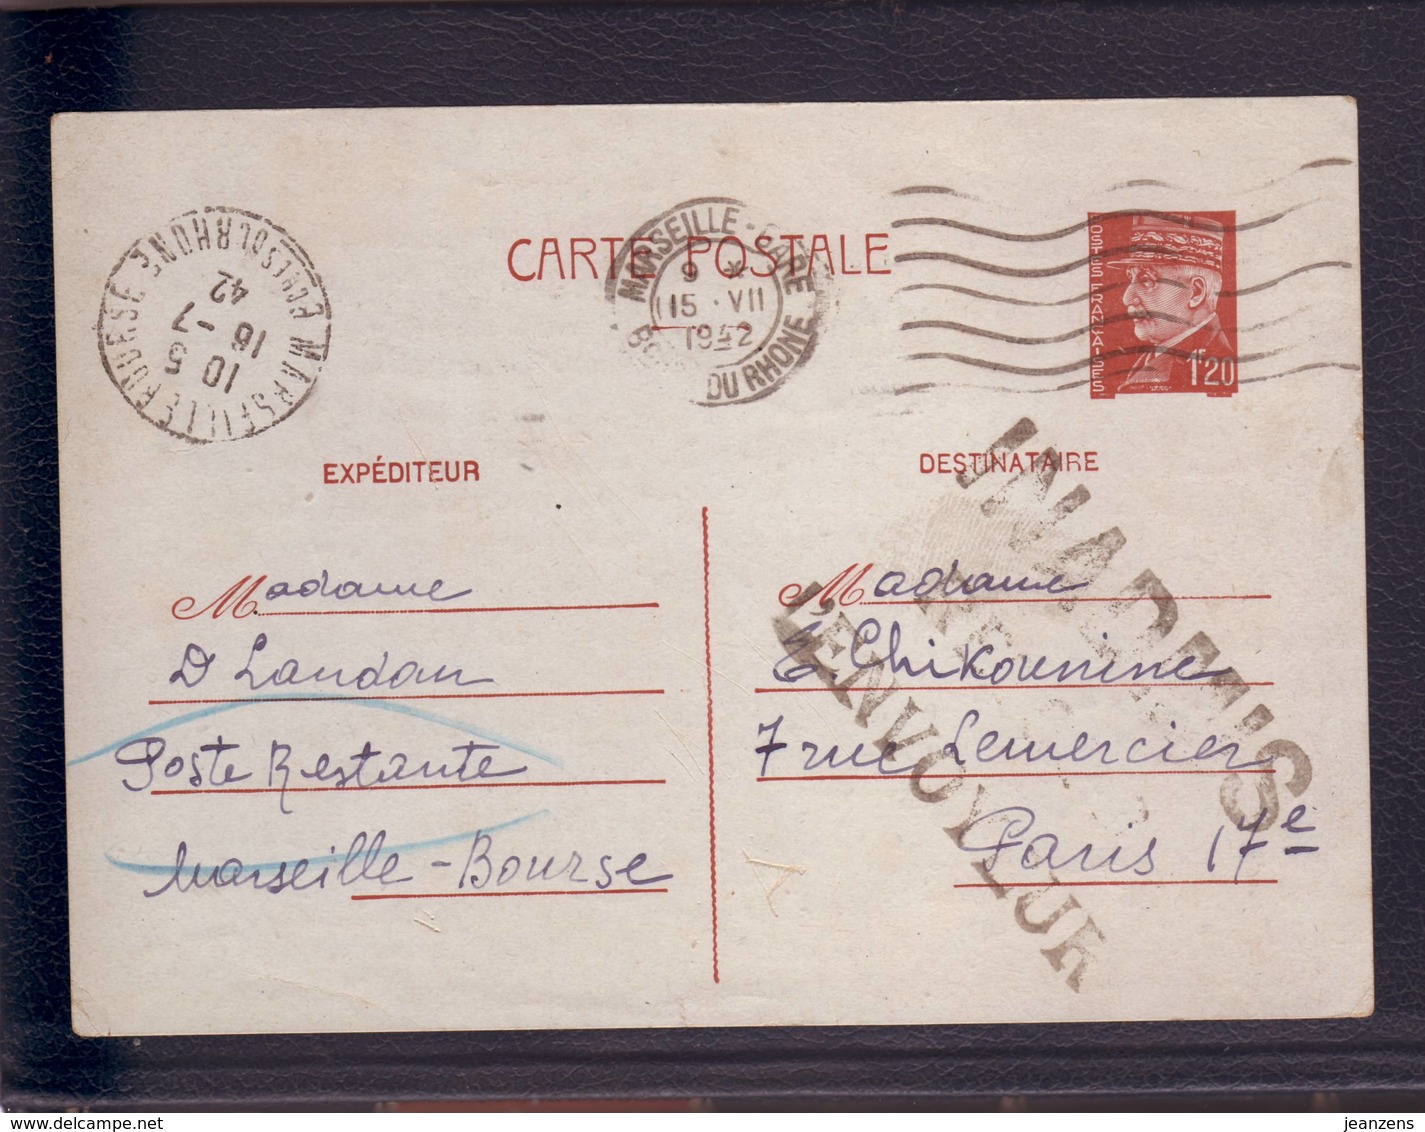 CARTE POSTALE
MARSEILLE-GARE
9 *
15 · VII
1942
DU RHONE
POSTES FRANÇAISES
1F20
MARSEILLE BOURSE
10 5
16 - 7
42
EXPÉDITEUR
DESTINATAIRE
INADMIS
RETOUR À
L'ENVOYEUR
Madame
D Landau
Poste Restante
Marseille-Bourse
Madame
Chikounine
7 rue Lemercier
Paris 17e
www.delcampe.net
jeanzens